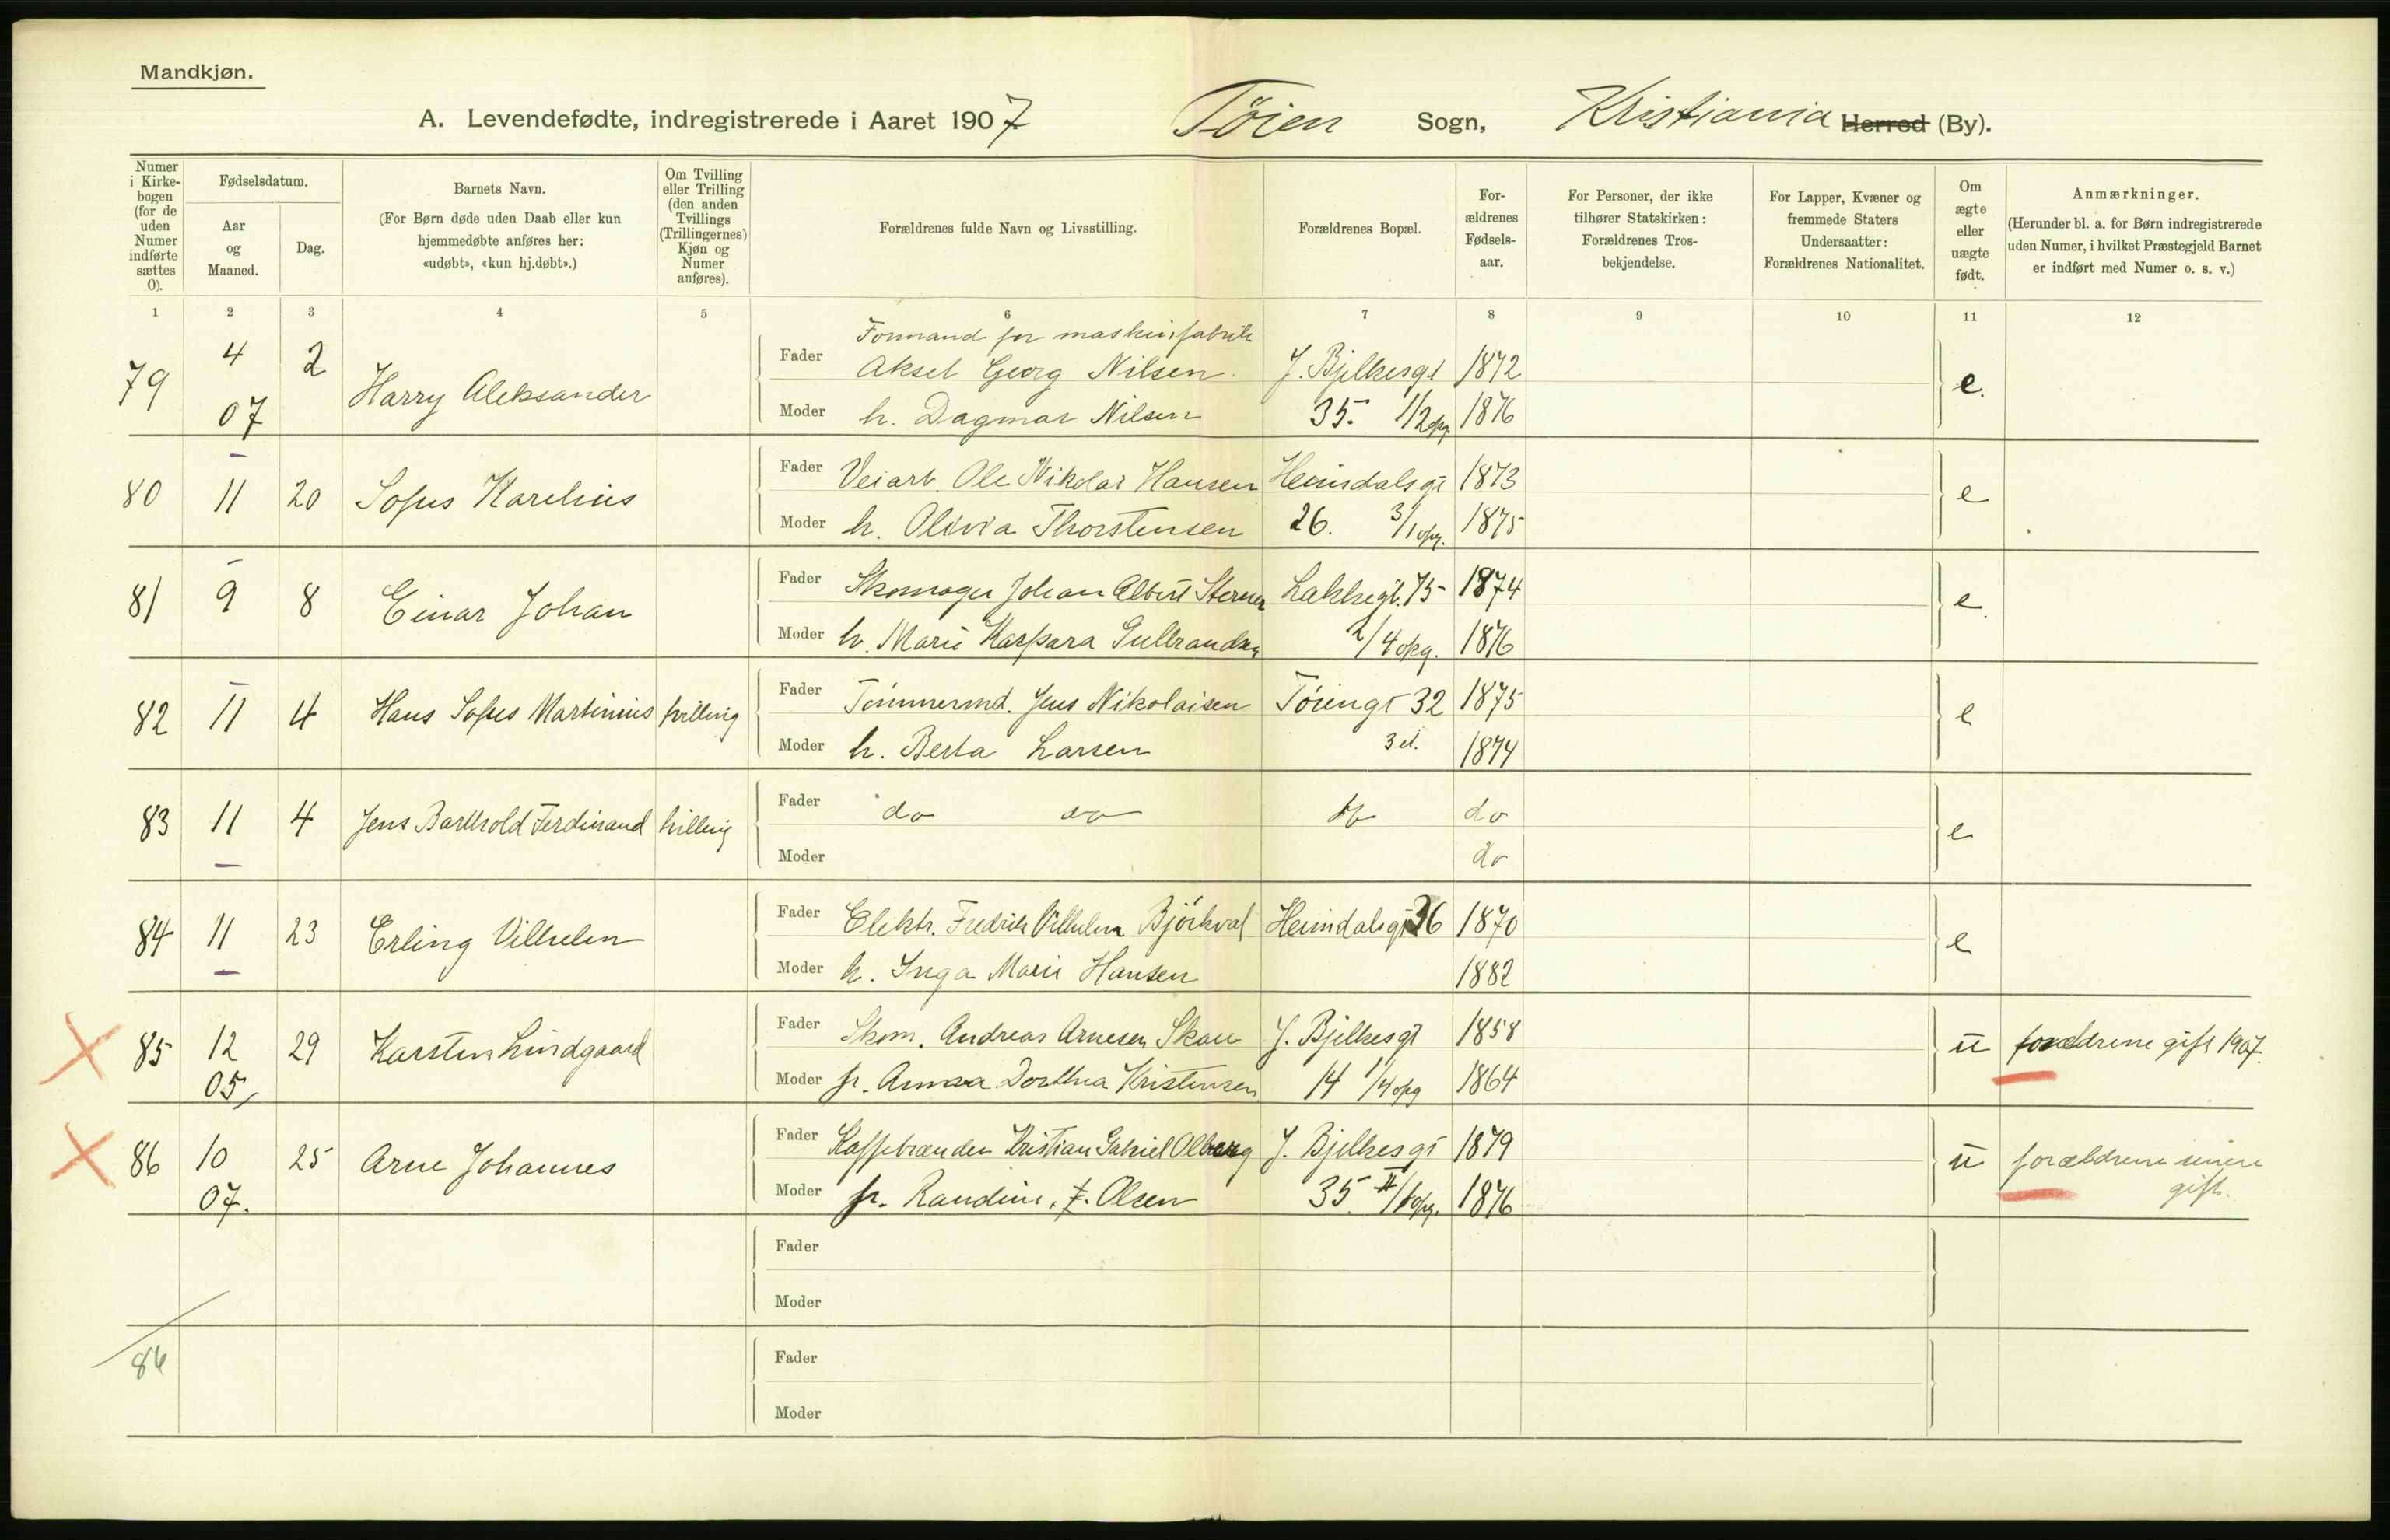 Mandkjøn.
A. Levendefødte, indregistrerede i Aaret 1907 Tøien Sogn, Kristiania Herred (By).
Numer i Kirkebogen (for de uden Numer indførte sættes 0).
Fødselsdatum.
Aar og Maaned.
Dag.
Barnets Navn.
(For Børn døde uden Daab eller kun hjemmedøbte anføres her: «udøbt», «kun hj.døbt».)
Om Tvilling eller Trilling (den anden Tvillings (Trillingernes) Kjøn og Numer anføres).
Forældrenes fulde Navn og Livsstilling.
Forældrenes Bopæl.
Forældrenes Fødselsaar.
For Personer, der ikke tilhører Statskirken: Forældrenes Trosbekjendelse.
For Lapper, Kvæner og fremmede Staters Undersaatter: Forældrenes Nationalitet.
Om ægte eller uægte født.
Anmærkninger.
(Herunder bl. a. for Børn indregistrerede uden Numer, i hvilket Præstegjeld Barnet er indført med Numer o. s. v.)
1 2 3 4 5 6 7 8 9 10 11 12
Formand for maskinfabrik
79 4 07 2 Harry Aleksander Fader Aksel Georg Nilsen. J. Bjelkesgt 1872 e.
Moder h. Dagmar Nilsen 35. 1/2 opg. 1876
80 11 20 Sofus Karelius Fader Veiarb. Ole Nikolai Hansen Heimdalsgt 1873 e
Moder h. Olivia Thorstensen 26. 3/1 opg. 1875
81 9 8 Einar Johan Fader Skomager Johan Albert Sterner Lakkegt. 75 1874 e
Moder h. Marie Kaspara Gulbrandsen 2/4 opg. 1876
82 11 4 Hans Sofus Martinius tvilling Fader Tømmermd. Jens Nikolaisen Tøiengt 32 1875 e
Moder h. Berta Larsen 3 et. 1874
83 11 4 Jens Barthold Ferdinand tvilling Fader do do do do e
Moder do
84 11 23 Erling Vilhelm Fader Elektr. Fredrik Vilhelm Bjørkval Heimdalsgt 36 1870 e
Moder h. Inga Marie Hansen 1882
85 12 05, 29 Karsten Lindgaard Fader Skom. Andreas Arnesen Skau J. Bjelkesgt 1858 u forældrene gift 1907.
Moder fr. Anna Dorthea Kristensen 14 1/4 opg 1864
86 10 07. 25 Arne Johannes Fader Kaffebrænder Kristian Gabriel Olberg J. Bjelkesgt 1879 u forældrene senere gift.
Moder fr. Randine. F. Olsen 35. II/1 opg. 1876
Fader
Moder
86
Fader
Moder